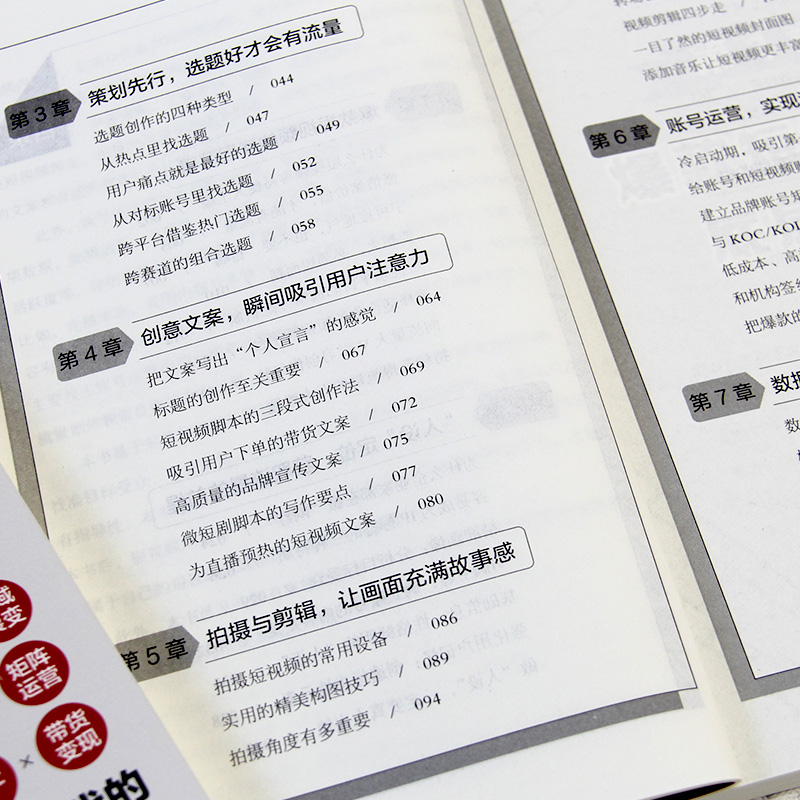 第3章
策划先行，选题好才会有流量
选题创作的四种类型 / 044
从热点里找选题 / 047
用户痛点就是最好的选题 / 049
从对标账号里找选题 / 052
跨平台借鉴热门选题 / 055
跨赛道的组合选题 / 058
第4章
创意文案，瞬间吸引用户注意力
把文案写出“个人宣言”的感觉 / 064
标题的创作至关重要 / 067
短视频脚本的三段式创作法 / 069
吸引用户下单的带货文案 / 072
高质量的品牌宣传文案 / 075
微短剧脚本的写作要点 / 077
为直播预热的短视频文案 / 080
第5章
拍摄与剪辑，让画面充满故事感
拍摄短视频的常用设备 / 086
实用的精美构图技巧 / 089
拍摄角度有多重要 / 094
视频剪辑四步走 /
一目了然的短视频封面图
添加音乐让短视频更丰富
第6章
账号运营，实现
冷启动期，吸引第
给账号和短视频
建立品牌账号
与KOC/KOL
低成本、高
和机构签
把爆款的
第7章
数据
数
域
变
矩阵
运营
×
带货
变现
的